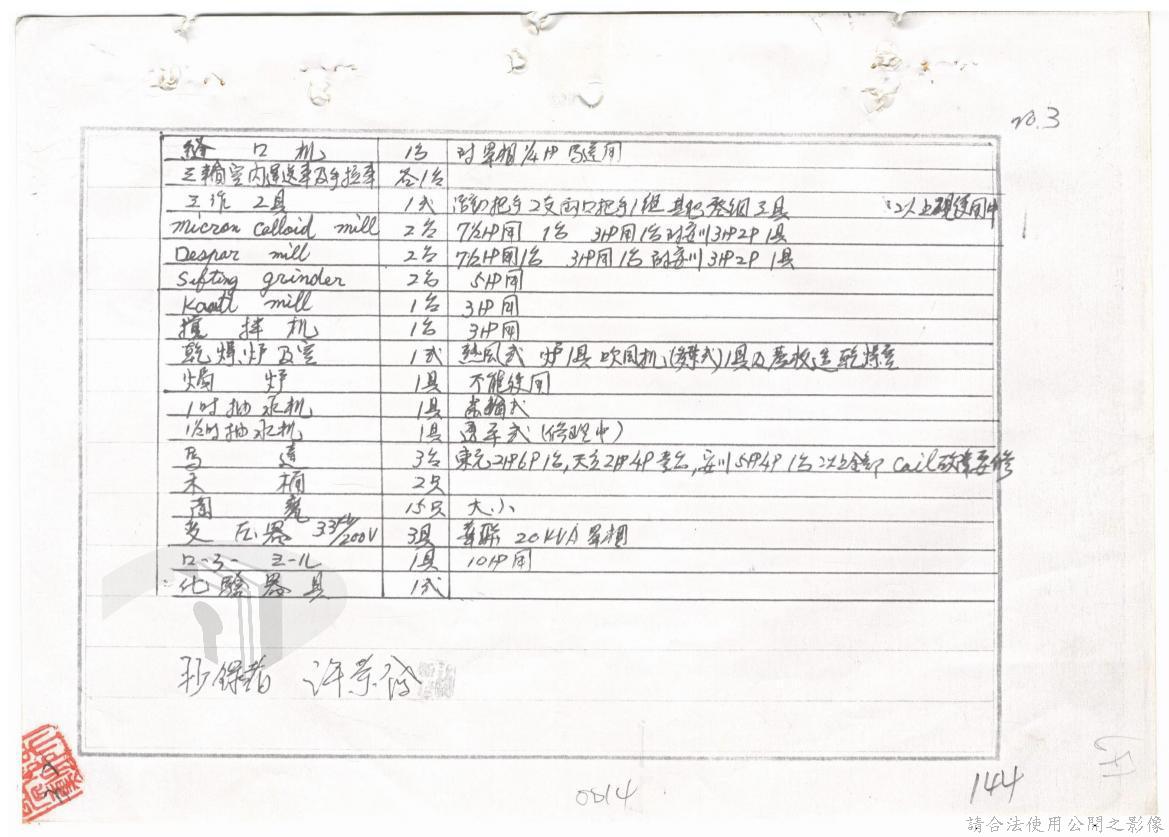 no.3
縫口机 1台 附單相1/4HP馬達用
三輪室內運送車及手拉車 各1台
工作工具 1式 活動把手2支 両口把手1組 其他零細工具 以上現使用中
micron colloid mill 2台 7½HP用 1台 3HP用1台附安川3HP2P 1具
Despar mill 2台 7½HP用1台 3HP用1台附安川3HP2P 1具
Sifting grinder 2台 5HP用
mill 1台 3HP用
攪拌机 1台 3HP用
乾燥炉及室 1式 熱風式 炉1具 吹風机 1具及 乾燥室
炉 1具 不能使用
1吋抽水机 1具
1½吋抽水机 1具 (修理中)
馬達 3台 東元2HP6P1台, 2HP4P壹台, 安川5HP4P1台 以上全部Coil故障要修
木桶 2只
15只 大小
変圧器 3300/200V 3具 華聯 20KVA 單相
ローラーミール 1具 10HP用
化驗器具 1式
許榮
0814
144
請合法使用公開之影像